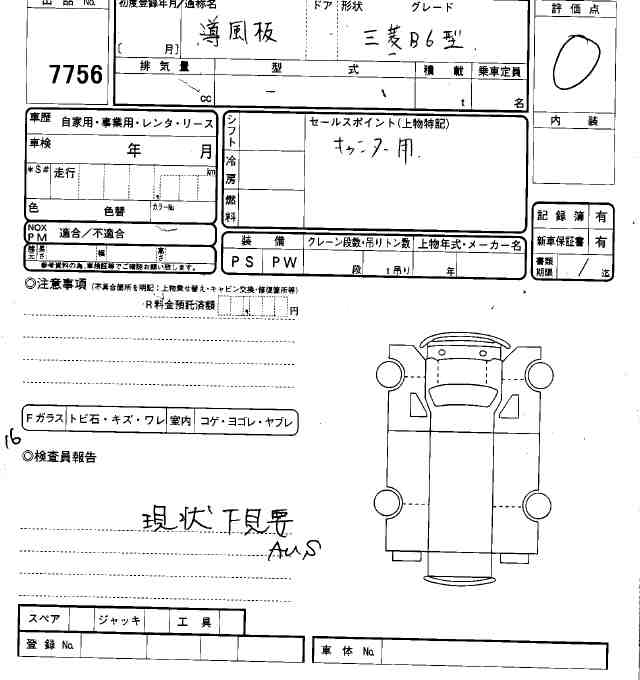 出品 No.
7756
初度登録年月／通称名
ドア 形状 グレード
導風板
三菱B6型
〔 月〕
排気量 型式 積載 乗車定員
cc － t 名
評価点
0
内装
車歴 自家用・事業用・レンタ・リース
車検 年 月
*S# 走行 km
色 色替 カラーNo.
NOX PM 適合／不適合
長さ 幅 高さ
参考資料の為、車検証等でご確認お願い致します。
シフト
冷房
燃料
セールスポイント(上物特記)
キャンター用.
装備 クレーン段数・吊りトン数 上物年式・メーカー名
PS PW 段 t吊り 年
記録簿 有
新車保証書 有
書類期限 / 迄
◎注意事項 (不具合箇所を明記：上物乗せ替え・キャビン交換・修復箇所等)
R料金預託済額 円
Fガラス トビ石・キズ・ワレ 室内 コゲ・ヨゴレ・ヤブレ
16
◎検査員報告
現状下見要
AUS
スペア ジャッキ 工具
登録No.
車体No.